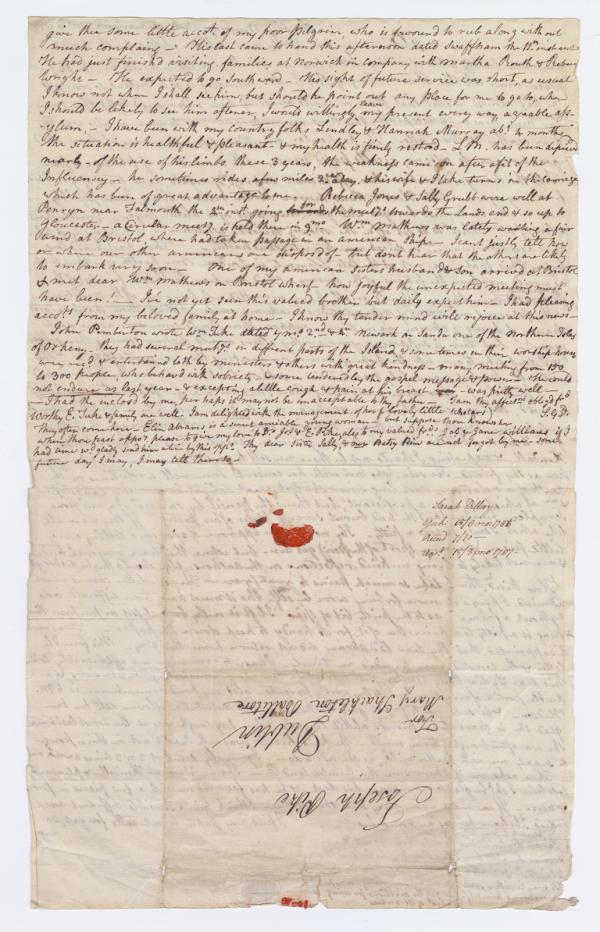 give thee some little accot. of my poor Pilgrim, who is favour'd to rub along without
much complaing — His last came to hand this afternoon dated Swaffham the 11th inst
He had just finish'd visiting families at Norwich in company with Martha Routh & Rebecca
Wright — He expected to go Southward — His sight of future service was short, as usual
I know not when I shall see him, but should he point out any place for me to go to, when
I should be likely to see him oftener, I would willingly leave my present every way, agreable asy-
ylum, — I have been with my country folks Lindley & Hannah Murray abt. 4 months
the situation is healthful & pleasant & my health is finely restor'd — L M. has been depriv'd
nearly — of the use of his limbs these 3 years, the weakness came on after a fit of the
Influenzy — he sometimes rides a few miles day, & his wife & I take turns in the carriage
which has been of great advantage to me. Rebecca Jones & Sally Grubb were well at
Penryn near Falmouth the inst. going for the meetgs. towards the Lands end & so up to
Gloucester — a circular meetg. is held there in 9mo. Wm. Mathews was lately waiting a fair
wind at Bristol, where had taken passage in an american ship. I cant justly tell how
or where our other americans are dispos'd of but dont hear that the others are likely
to embark very soon — One of my american Sisters husband & son arrived at Bristol
& met dear Wm. Mathews on Bristol wharf how joyful the unexpected meeting must
have been! — I've not yet seen this valued brother but daily expect him — I had pleasing
accots. from my beloved family at home — I know thy tender mind will rejoice at this news —
John Pemberton wrote Wm. Tuke dated 7 mo. 2nd & 4th Newark in Sanda one of the Northern Isles
of Orkney — they had several meetgs. in different parts of the Island, & sometimes in their worship houses
were recd & entertained both by ministers & others with great kindness — many meeting from 150
to 300 people, who behav'd with sobriety & some tendered by the gospel message & power — He could
not endure as last year — & excepting a little cough & pain at his breast was pretty well
— I had the inclos'd by me, perhaps it may not be unacceptable to thy father — I am thy affectt. oblig'd fd.
Worthy E. Tuke & family are well. I am delighted with the management of her lovely little scholars S. G. D.
They often come here — Eliz: Abrams, is a sweet amiable young woman — but suppose thou knows her
when thou hast oppoy. please to give my love to Dr. Jos: & E. Pike, also to my valued fds. Job & Jane Williams if I
had time wd. gladly send him a line by this oppy. Thy dear Sister Sally, & Betsy Pim are not forgot by me — some
future day I may, I may tell them so
Sarah Dillwyn
York 15/8 mo 1786
Receid 7/10
Ansd. 15/3 mo 1787
Joseph Pike
Dublin
For
Mary Shackleton Ballitore